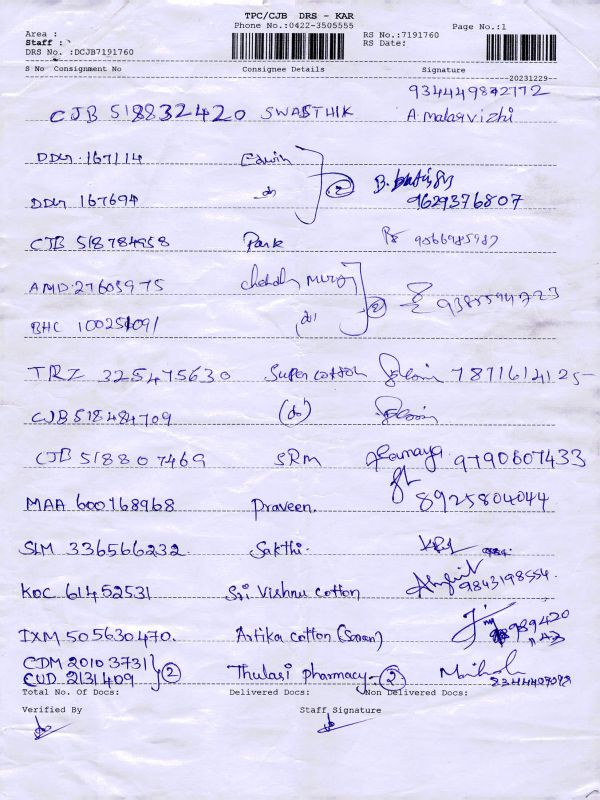 TPC/CJB DRS - KAR
Phone No.:0422-3505555
Page No.:1
Area :
Staff :
RS No.:7191760
DRS No. :DCJB7191760
RS Date:
S No Consignment No Consignee Details Signature
20231229
CJB 518832420 SWASTHIK A. Malarvizhi
DDM 167114 Edwin
DDM 167694 do (2) 9629376807
CJB 518784958 Park 9566985987
AMD 27605975
BHC do (2)
TRZ 325475630 Super cotton
CJB 518484709 (do)
CJB 518807469 SRM 9790607433
MAA 600768968 Praveen. 8925804044
SLM 336566232 Sakthi.
KOC 61452531 Sri Vishnu cotton 9843198554
IXM 505630470. Artika cotton
CDM 20103731
CUD 2131409 (2) Thulasi pharmacy (2)
Total No. Of Docs: Delivered Docs: Non Delivered Docs:
Verified By Staff Signature